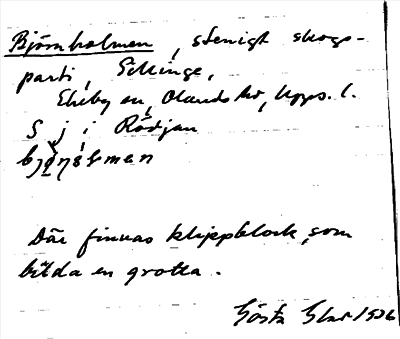 Björnholmen, stenigt skogs-
parti, Eckinge,
Ekeby sn, Olands hd, Upps. l.
S j i Rödjan
Där finnas klippblock, som
bilda en grotta.
Gösta 1926